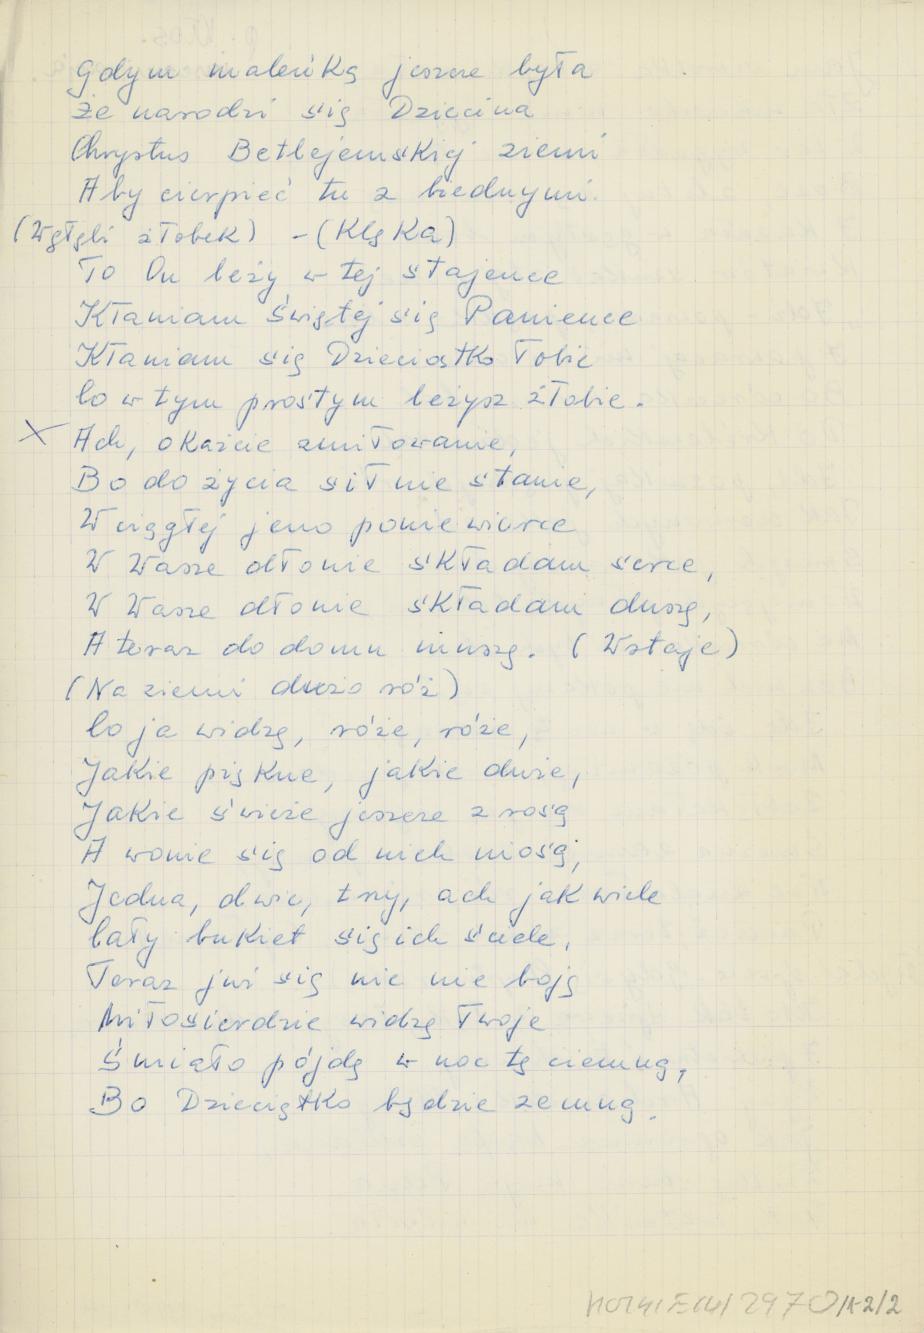 Gdym maleńką jeszcze była
że narodzi się Dziecina
Chrystus Betlejemskiej ziemi
Aby cierpieć tu z biednymi.
(W głębi żłobek) - (Klęka)
To On leży w tej stajence
Kłaniam Świętej się Panience
Kłaniam się Dzieciątko Tobie
Co w tym prostym leżysz żłobie.
X Ach, okażcie zmiłowanie,
Bo do życia sił nie stanie,
W ciągłej jeno poniewierce
W Wasze dłonie składam serce,
W Wasze dłonie składam duszę,
A teraz do domu muszę. (Wstaje)
(Na ziemi dużo róż)
Co ja widzę, róże, róże,
Jakie piękne, jakie duże,
Jakie świeże jeszcze z rosą
A wonie się od nich niosą,
Jedna, dwie, trzy, ach jak wiele
Cały bukiet się ich ściele,
Teraz już się nic nie boję
Miłosierdzie widzę Twoje
Śmiało pójdę w noc tę ciemną,
Bo Dzieciątko będzie zemną.
2970/1-2/2